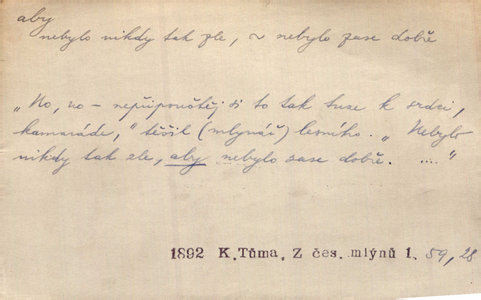 aby
nebylo nikdy tak zle, ~ nebylo zase dobře
„No, no – nepřipouštěj si to tak tuze k srdci,
kamaráde," těšil (mlynář) lesního. „Nebylo
nikdy tak zle, aby nebylo zase dobře. ...."
1892 K. Tůma, Z čes. mlýnů 1. 59, 28